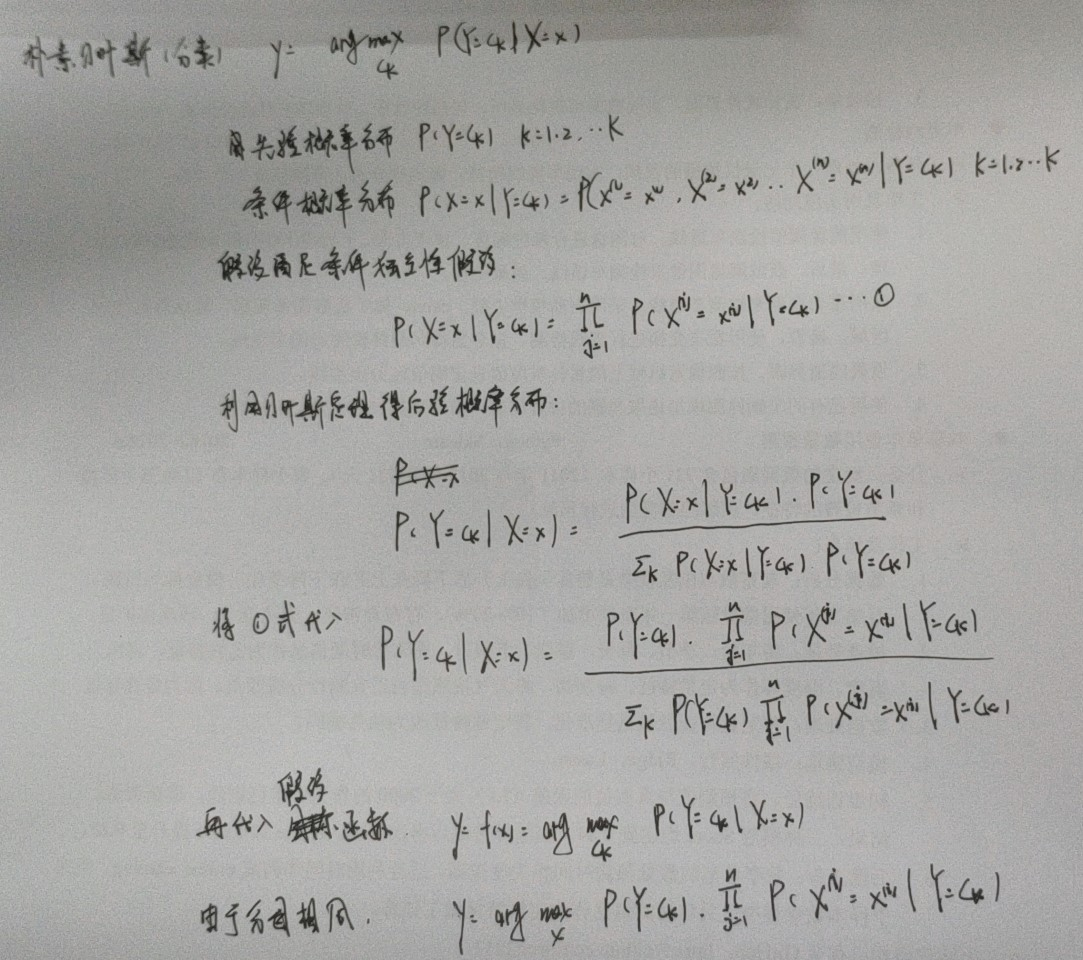 朴素贝叶斯(分类) y= arg max_{ck} P(Y=ck|X=x)
先验概率分布 P(Y=ck) K=1.2,...K
条件概率分布 P(X=x|Y=ck) = P(X^{(1)}=x^{(1)}, X^{(2)}=x^{(2)}... X^{(n)}=x^{(n)}|Y=ck) K=1.2...K
假设满足条件独立性假设:
P(X=x|Y=ck) = ∏_{j=1}^{n} P(X^{(j)}=x^{(j)}|Y=ck) ...①
利用贝叶斯定理得后验概率分布:
P(X=x
P(Y=ck|X=x) = P(X=x|Y=ck).P(Y=ck) / Σ_K P(X=x|Y=ck).P(Y=ck)
将①式代入 P(Y=ck|X=x) = P(Y=ck).∏_{j=1}^{n} P(X^{(j)}=x^{(j)}|Y=ck) / Σ_K P(Y=ck) ∏_{j=1}^{n} P(X^{(j)}=x^{(j)}|Y=ck)
假设
再代入 函数 y=f(x)= arg max_{ck} P(Y=ck|X=x)
由于分母相同. y= arg max_{x} P(Y=ck) ∏_{j=1}^{n} P(X^{(j)}=x^{(j)}|Y=ck)